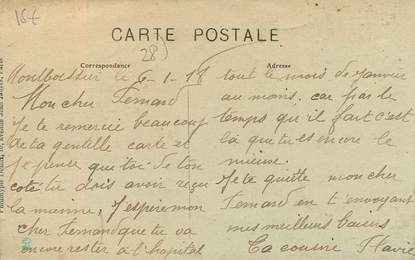 167
CARTE POSTALE
28)
Correspondance
Adresse
Montboissier le 6-1-18
Mon cher Fernand
Je te remercie beaucoup
de ta gentille carte et
je pense que toi de ton
coté tu dois avoir reçu
la mienne, J'espère mon
cher Fernand que tu va
encore rester à l'hopital
tout le mois de Janvier
au moins. car par le
temps qu'il fait c'est
là que tu es encore le
mieux.
Je te quitte mon cher
Fernand en t'envoyant
mes meilleurs baisers
Ta cousine Flavie